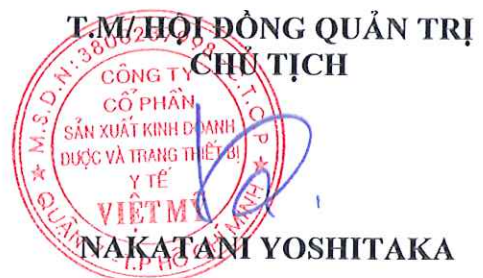 T.M/ HỘI ĐỒNG QUẢN TRỊ
CHỦ TỊCH
M.S.D.N: C.T.C.P
CÔNG TY
CỔ PHẦN
SẢN XUẤT KINH DOANH
DƯỢC VÀ TRANG THIẾT BỊ
Y TẾ
VIỆT MỸ
T.P HỒ CHÍ MINH
NAKATANI YOSHITAKA